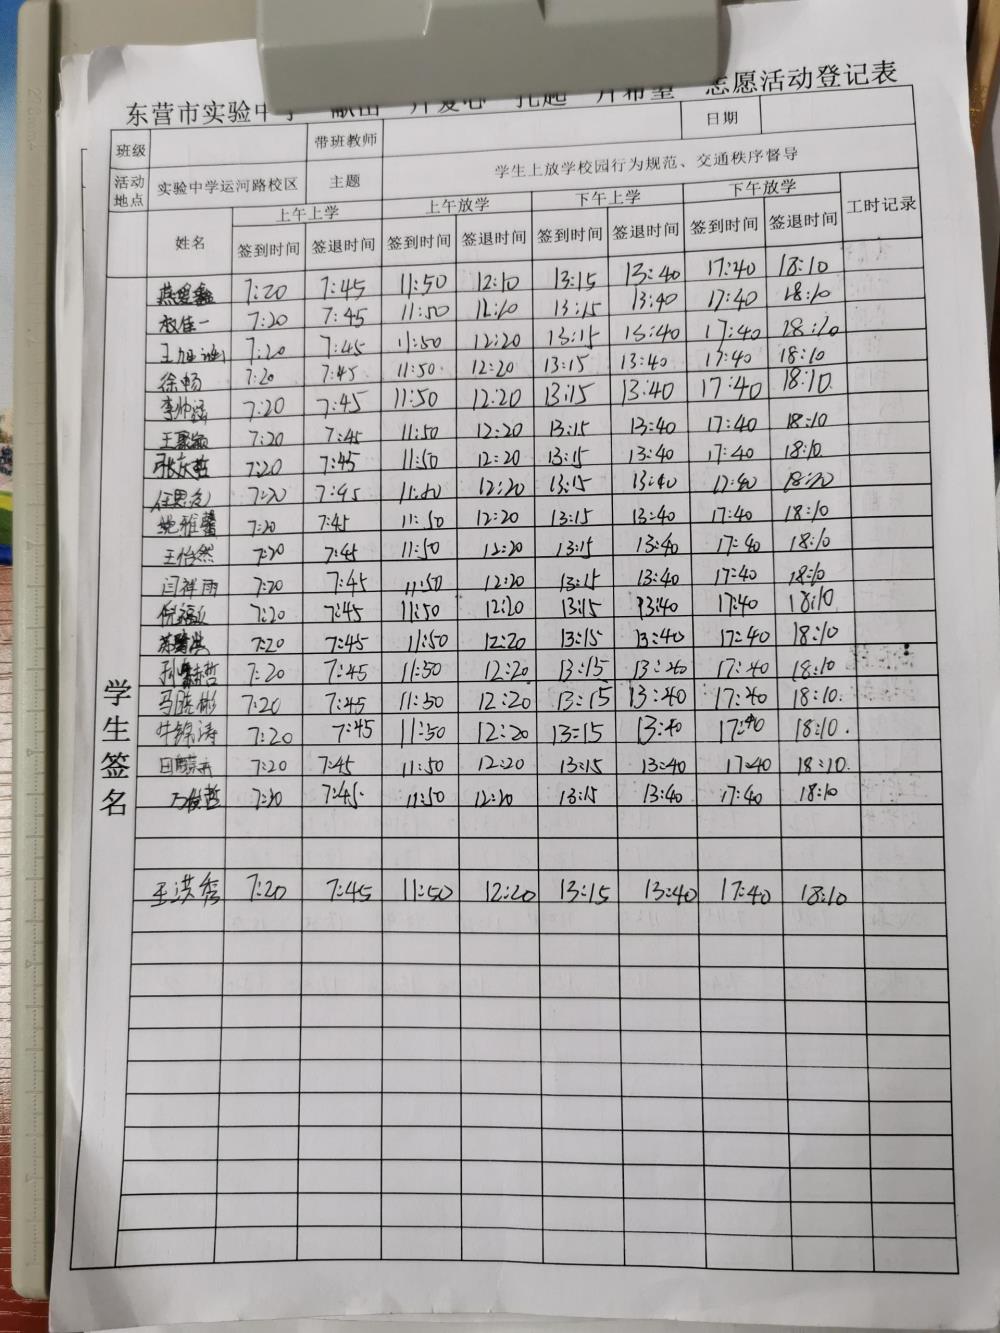 东营市实验中学 献出一片爱心 托起一片希望 志愿活动登记表
班级 带班教师 日期
活动地点 实验中学运河路校区 主题 学生上放学校园行为规范、交通秩序督导
姓名 上午上学 上午放学 下午上学 下午放学 工时记录
签到时间 签退时间 签到时间 签退时间 签到时间 签退时间 签到时间 签退时间
学生签名
7:20 7:45 11:50 12:10 13:15 13:40 17:40 18:10
7:20 7:45 11:50 13:15 13:40 17:40 18:10
7:20 7:45 11:50 12:20 13:15 13:40 17:40 18:10
徐畅 7:20 7:45 11:50 12:20 13:15 13:40 17:40 18:10
李帅涵 7:20 7:45 11:50 12:20 13:15 13:40 17:40 18:10
7:20 7:45 11:50 12:20 13:15 13:40 17:40 18:10
张东哲 7:20 7:45 11:50 12:20 13:15 13:40 17:40 18:10
7:20 7:45 11:50 12:20 13:15 13:40 17:40
鲍雅馨 7:20 7:45 11:50 12:20 13:15 13:40 17:40 18:10
王怡然 7:20 7:45 11:50 12:20 13:15 13:40 17:40 18:10
闫祥雨 7:20 7:45 11:50 12:20 13:15 13:40 17:40 18:10
7:20 7:45 11:50 12:20 13:15 13:40 17:40 18:10
7:20 7:45 11:50 12:20 13:15 13:40 17:40 18:10
7:20 7:45 11:50 12:20 13:15 13:40 17:40 18:10
马晓彬 7:20 7:45 11:50 12:20 13:15 13:40 17:40 18:10.
牛锦涛 7:20 7:45 11:50 12:20 13:15 13:40 17:40 18:10.
7:20 7:45 11:50 12:20 13:15 13:40 17:40 18:10.
万俊哲 7:20 7:45 11:50 12:20 13:15 13:40 17:40 18:10
王洪秀 7:20 7:45 11:50 12:20 13:15 13:40 17:40 18:10